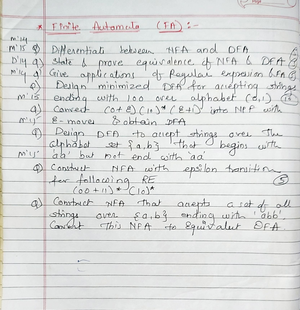 * Finite Automata (FA) :-
M'14
M'15 Q) Differentiate between NFA and DFA
D'14 Q) State & prove equivalence of NFA & DFA
M'14 Q) Give applications of Regular expression & FA
Q) Design minimized DFA for accepting strings
M'15 ending with 100 over alphabet (0,1) (10)
Q) Convert (0+ε)(10)* (ε+1) into NFA with
M'15 ε-moves & obtain DFA
Q) Design DFA to accept strings over the
alphabet set {a,b} that begins with
M'15 'ab' but not end with 'aa'
Q) Construct NFA with epsilon transition
for following RE (5)
(00+11)* (10)*
Q) Construct NFA that accepts a set of all
strings over {a,b} ending with 'abb'.
Convert this NFA to equivalent DFA.